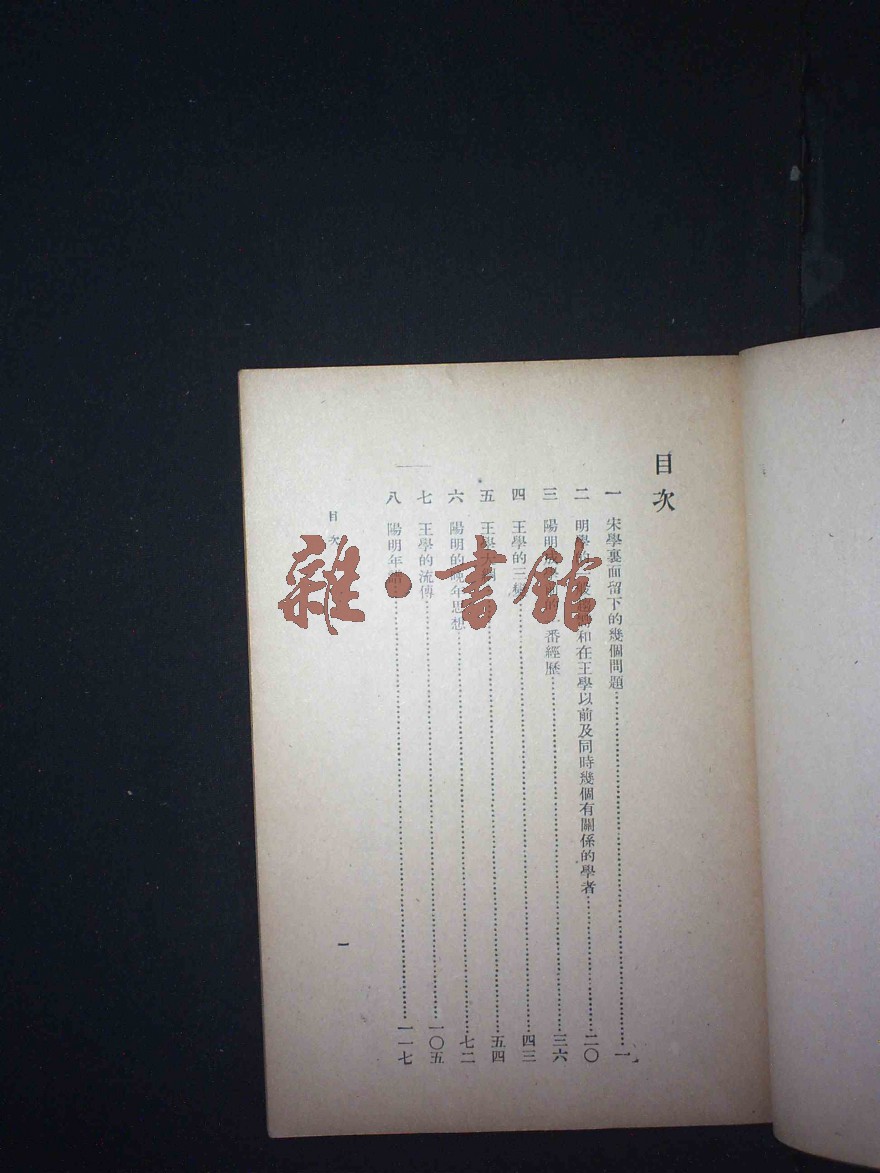 目次
一 宋學裏面留下的幾個問題……一
二 明學的 和在王學以前及同時幾個有關係的學者……二〇
三 陽明成 的一番經歷……三六
四 王學的三 ……四三
五 王學大綱……五四
六 陽明的晚年思想……七二
七 王學的流傳……一〇五
八 陽明年譜……一一七
目次
一
雜·書館